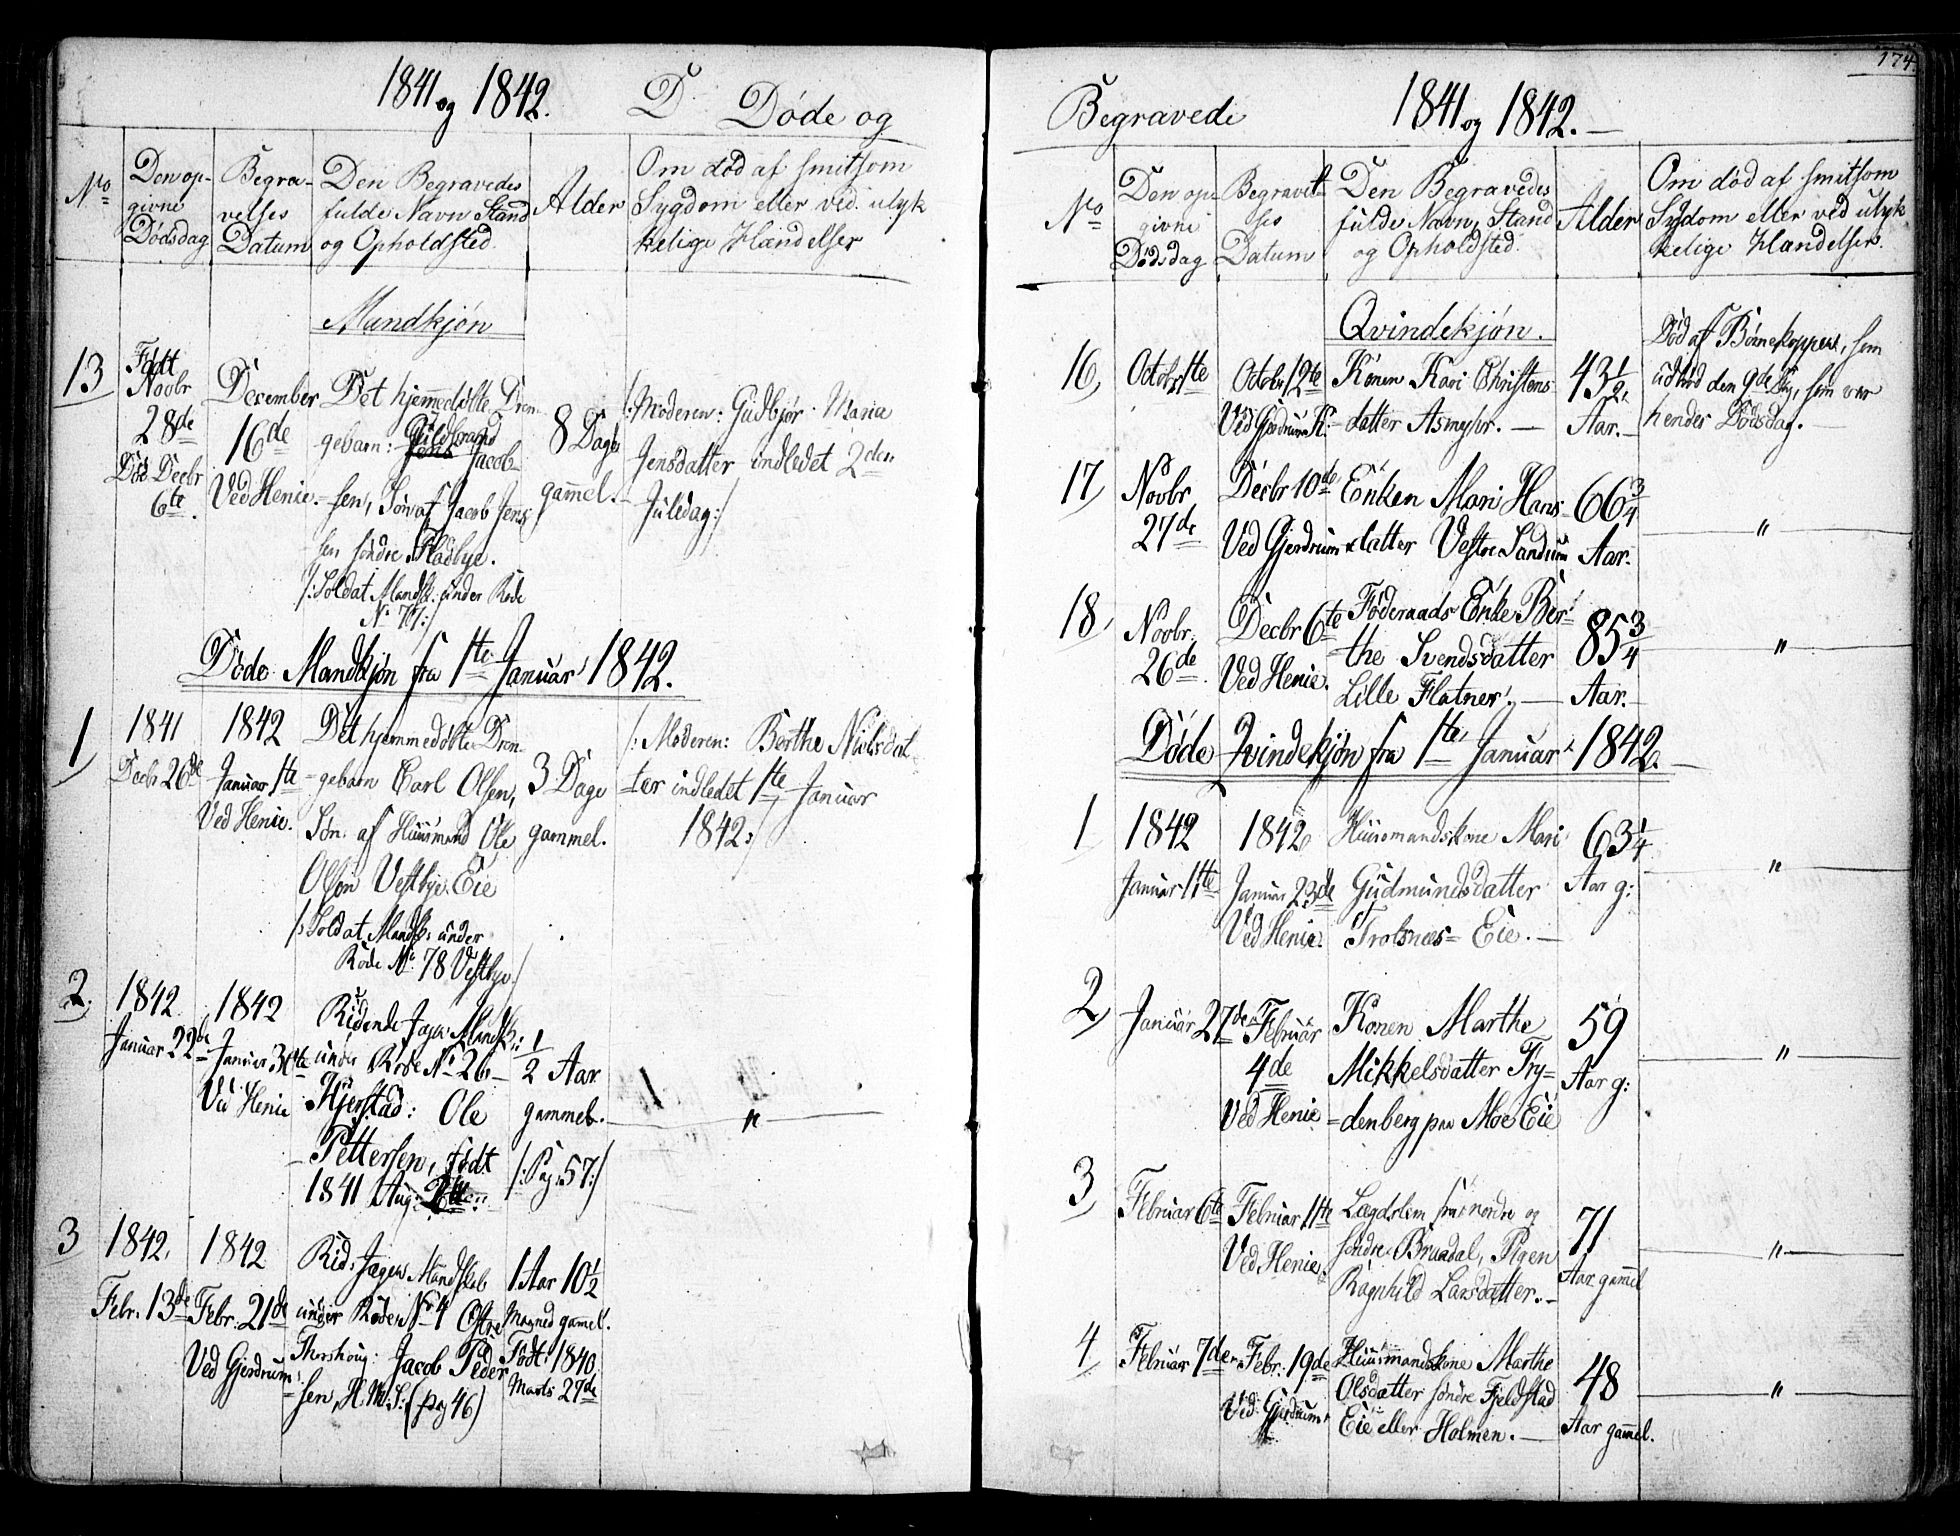 1841 og 1842. D. Døde og
No
Den op-
givne
Dødsdag
Begra-
velses
Datum
Den Begravedes
fulde Navn Stand
og Opholdsted.
Alder
Om død af smitsom
Sygdom eller ved ulyk
kelige Hændelser
Mandkjøn
13
Født
Novbr
28de
Død Decbr
6te.
December
16de
Ved Henie.
Det hjemmedøbte Dren-
gebarn: Guldbrand
Jens Jacob-
sen, Søn af Jacob Jens-
sen søndre Fladbye.
/:Soldat Mandsk: under Rode
No 77:/
8 Dage
gammel.
/:Moderen: Gudbjør Maria
Jensdatter indledet 2den
Juledag:/
Døde Mandkjøn fra 1te Januar 1842.
1
1841
Decbr 26de
1842
Januar 1te
Ved Henie.
Det hjemmedøbte Dren-
gebarn Carl Olsen,
Søn af Huusmand Ole
Olsen Vestbye Eie
/:Soldat Mandsk: under
Rode No. 78 Vestbye:/
3 Dage
gammel.
/:Moderen: Berthe Nielsdat-
ter indledet 1te Januar
1842:/
2,
1842
Januar 22de
1842
Januar 30te
Ved Henie
Ridende Jæger Mandsk:
under Rode No 26
Hjerstad: Ole
Pettersen, født
1841 Aug:
1/2 Aar
gammel.
/:Pag: 57:/
"
3
1842,
Febr. 13de
1842
Febr: 21de
Ved Gjerdrum
Rid: Jæger Mandskab
under Roden No 4 Østre
Thorshoug: Jacob Peder-
sen, H. M. S: (pag 46)
1 Aar 10 1/2
Maaned gamel.
Født: 1840
Marts 27de
174.
Begravede 1841 og 1842.
No
Den op-
givne
Dødsdag
Begravel-
ses
Datum
Den Begravedes
fulde Navn, Stand
og Opholdsted.
Alder
Om død af smitsom
Sygdom eller ved ulyk
kelige Hændelser.
Qvindekjøn.
16,
Octobr 1te
Octobr 12te
Ved Gjerdrum K:
Konen Kari Christens-
datter Asmyhr.
43 1/2
Aar.
Død af Børnekopper, som
udbrød den 9de Dag, som var
hendes Dødsdag.
17,
Novbr
27de
Decbr 10de
Ved Gjerdrum
Enken Mari Hans-
datter Vestre Sandum
66 3/4
Aar.
"
18,
Novbr.
26de
Decbr 6te
Ved Henie.
Føderaads Enke Ber-
the Svendsdatter
Lille Flatner.
85 3/4
Aar.
"
Døde Qvindekjøn fra 1te Januar 1842.
1
1842
Januar 1te
1842
Januar 23de
Ved Henie
Huusmandskone Mari
Gudmundsdatter
Trotsnæs= Eie.
63 1/4
Aar g:
"
2,
Januar 27de
Februar
4de
Ved Henie
Konen Marthe
Mikkelsdatter Fry=
=denberg paa Moe Eie
59
Aar g:
"
3,
Februar 6te
Februar 11te
Ved Henie.
Lægdslem fra nordre og
søndre Braadal, Pigen
Ragnhild Larsdatter.
71
Aar gammel
"
4
Februar 7de
Febr. 19de
Ved Gjerdrum
Huusmandskone Marthe
Olsdatter søndre Fjeldstad
Eie eller Holmen.
48
Aar gammel.
"